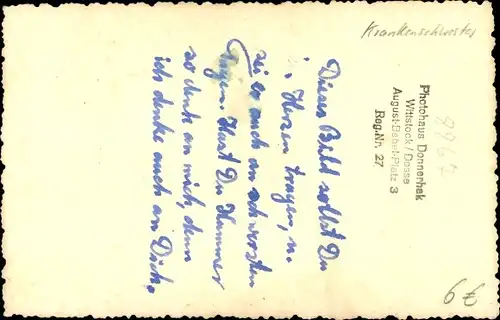 Krankenschwester
Photohaus Donnerhak
Wittstock/Dosse
August-Bebel-Platz 3
Reg.Nr. 27
9967
Dieses Bild sollst Du
i. Herzen tragen, u.
sei es auch an schwersten
Tagen. Hast Du Kummer
so denk an mich, denn
ich denke auch an Dich.
6 €